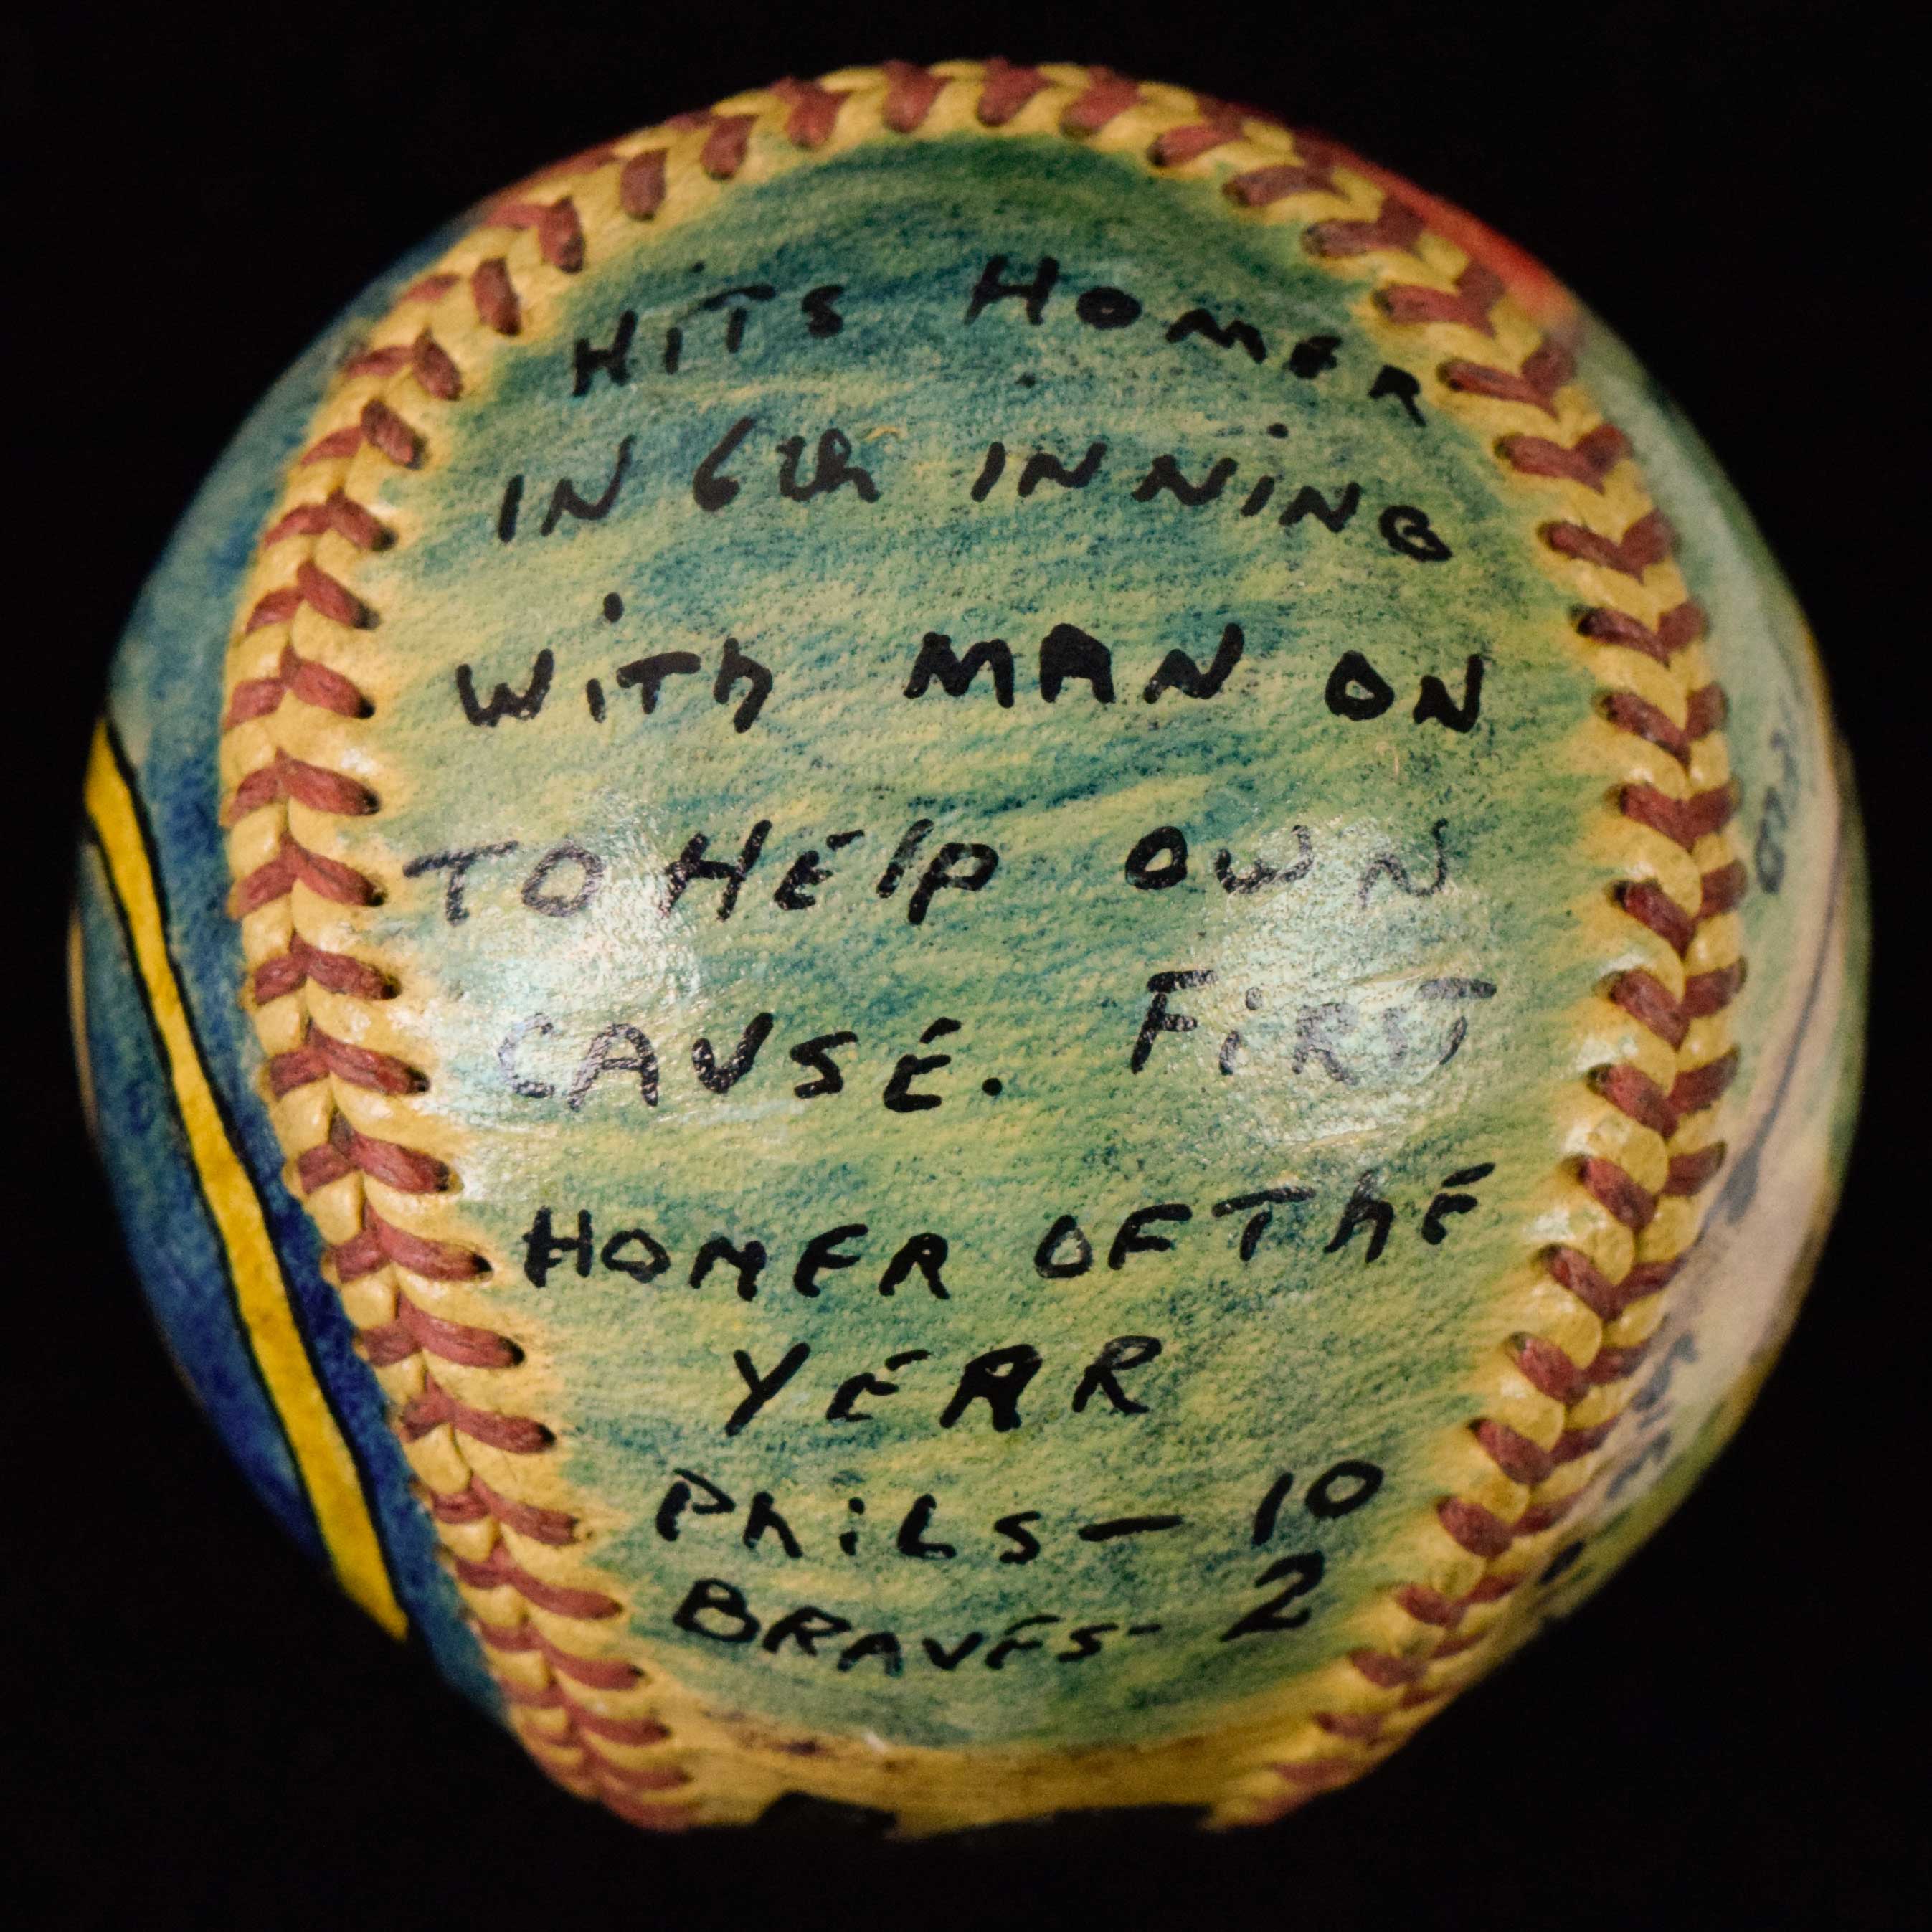 HITS HOMER
IN 6th INNING
WITh MAN ON
TO HELP OWN
CAUSE. FIRST
HOMER OF THE
YEAR
PhiLS — 10
BRAVES - 2